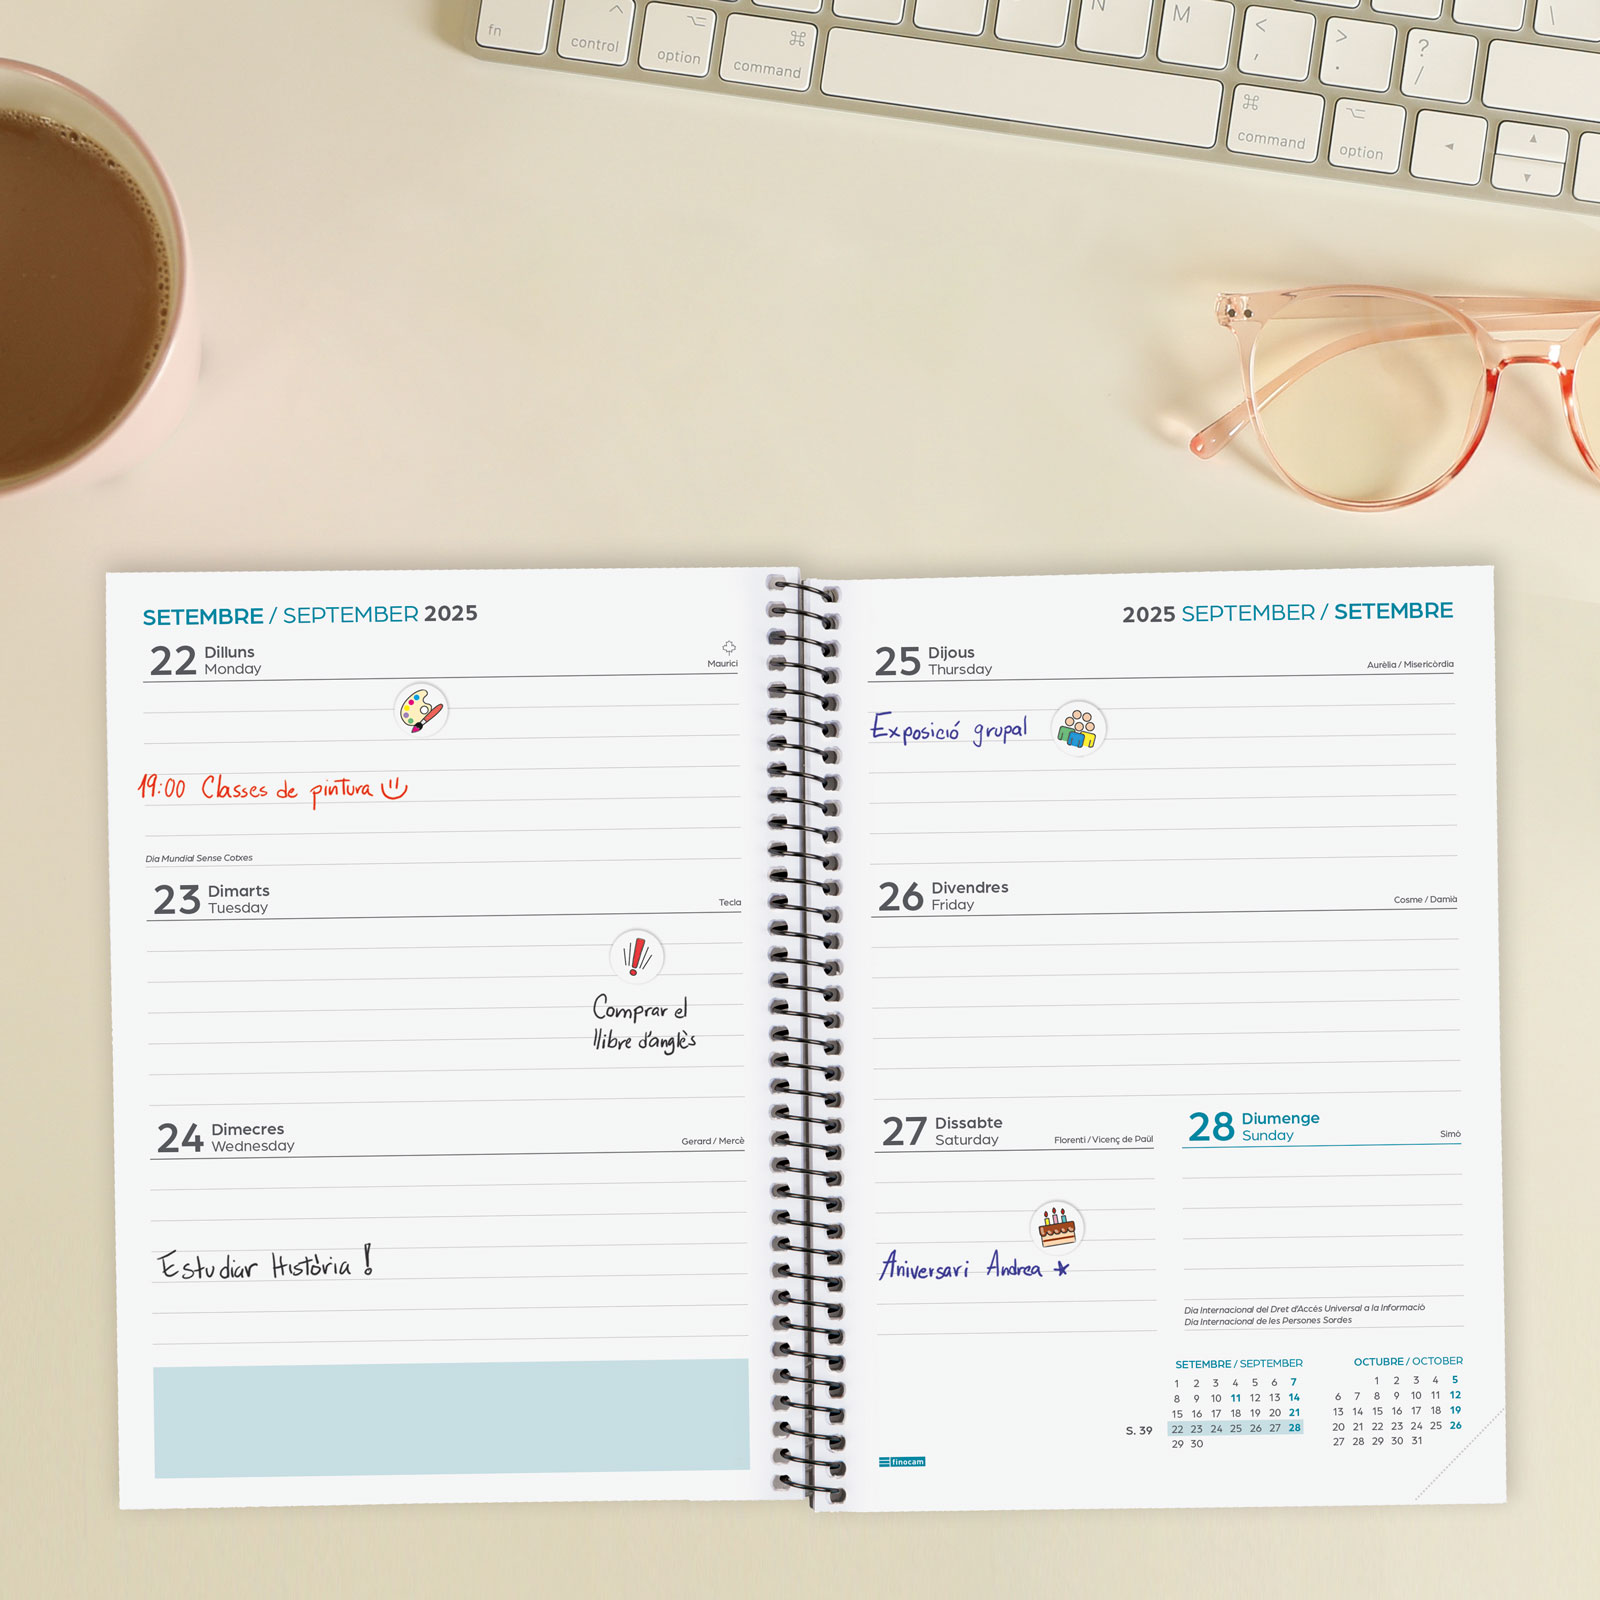 fn
control
option
command
N
M
<
,
>
.
?
/
\
command
option
SETEMBRE / SEPTEMBER 2025
22 Dilluns
Monday
Maurici
19:00 Classes de pintura
Dia Mundial Sense Cotxes
23 Dimarts
Tuesday
Tecla
Comprar el
llibre d'anglès
24 Dimecres
Wednesday
Gerard / Mercè
Estudiar Història !
2025 SEPTEMBER / SETEMBRE
25 Dijous
Thursday
Aurèlia / Misericòrdia
Exposició grupal
26 Divendres
Friday
Cosme / Damià
27 Dissabte
Saturday
Florentí / Vicenç de Paül
Aniversari Andrea
28 Diumenge
Sunday
Simó
Dia Internacional del Dret d'Accés Universal a la Informació
Dia Internacional de les Persones Sordes
SETEMBRE / SEPTEMBER
1 2 3 4 5 6 7
8 9 10 11 12 13 14
15 16 17 18 19 20 21
S. 39 22 23 24 25 26 27 28
29 30
OCTUBRE / OCTOBER
1 2 3 4 5
6 7 8 9 10 11 12
13 14 15 16 17 18 19
20 21 22 23 24 25 26
27 28 29 30 31
finocam